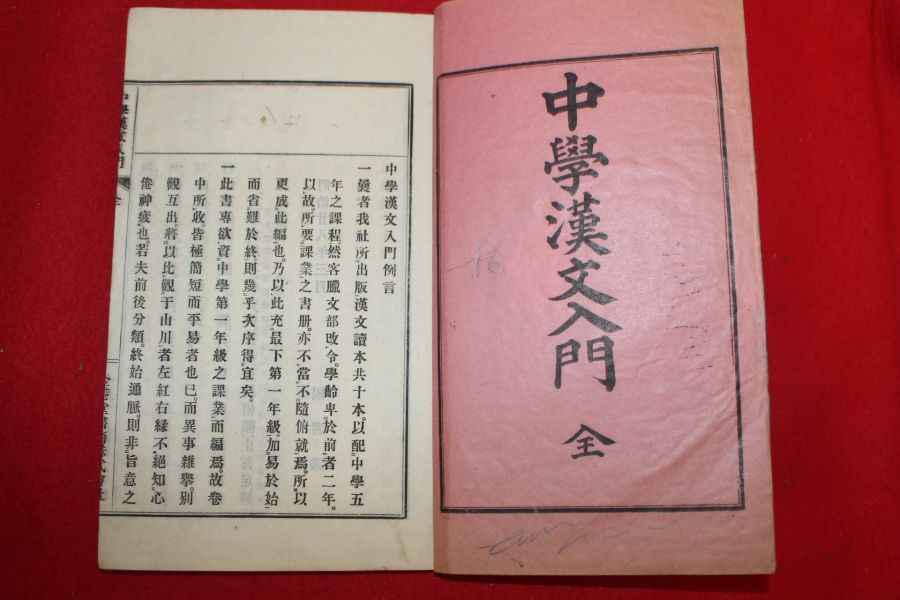 中學漢文入門
全
中學漢文入門例言
一曩者我社所出版漢文讀本共十本。以配中學五
年之課程。然客臘文部改令。學齡卑於前者二年。
以故。所要課業之書册。亦不當不隨俯就焉。所以
更成此編也。乃以此充最下第一年級。加易於始
而省難於終。則幾乎次序得宜矣。
一此書專欲資中學第一年級之課業而編焉。故卷
中所收。皆極簡短而平易者也已。而異事雜擧。別
觀互出。將以比觀于山川者左紅右綠不絕知心
倦神疲也。若夫前後分類。終始通脈。則非旨意之
中學漢文入門
全